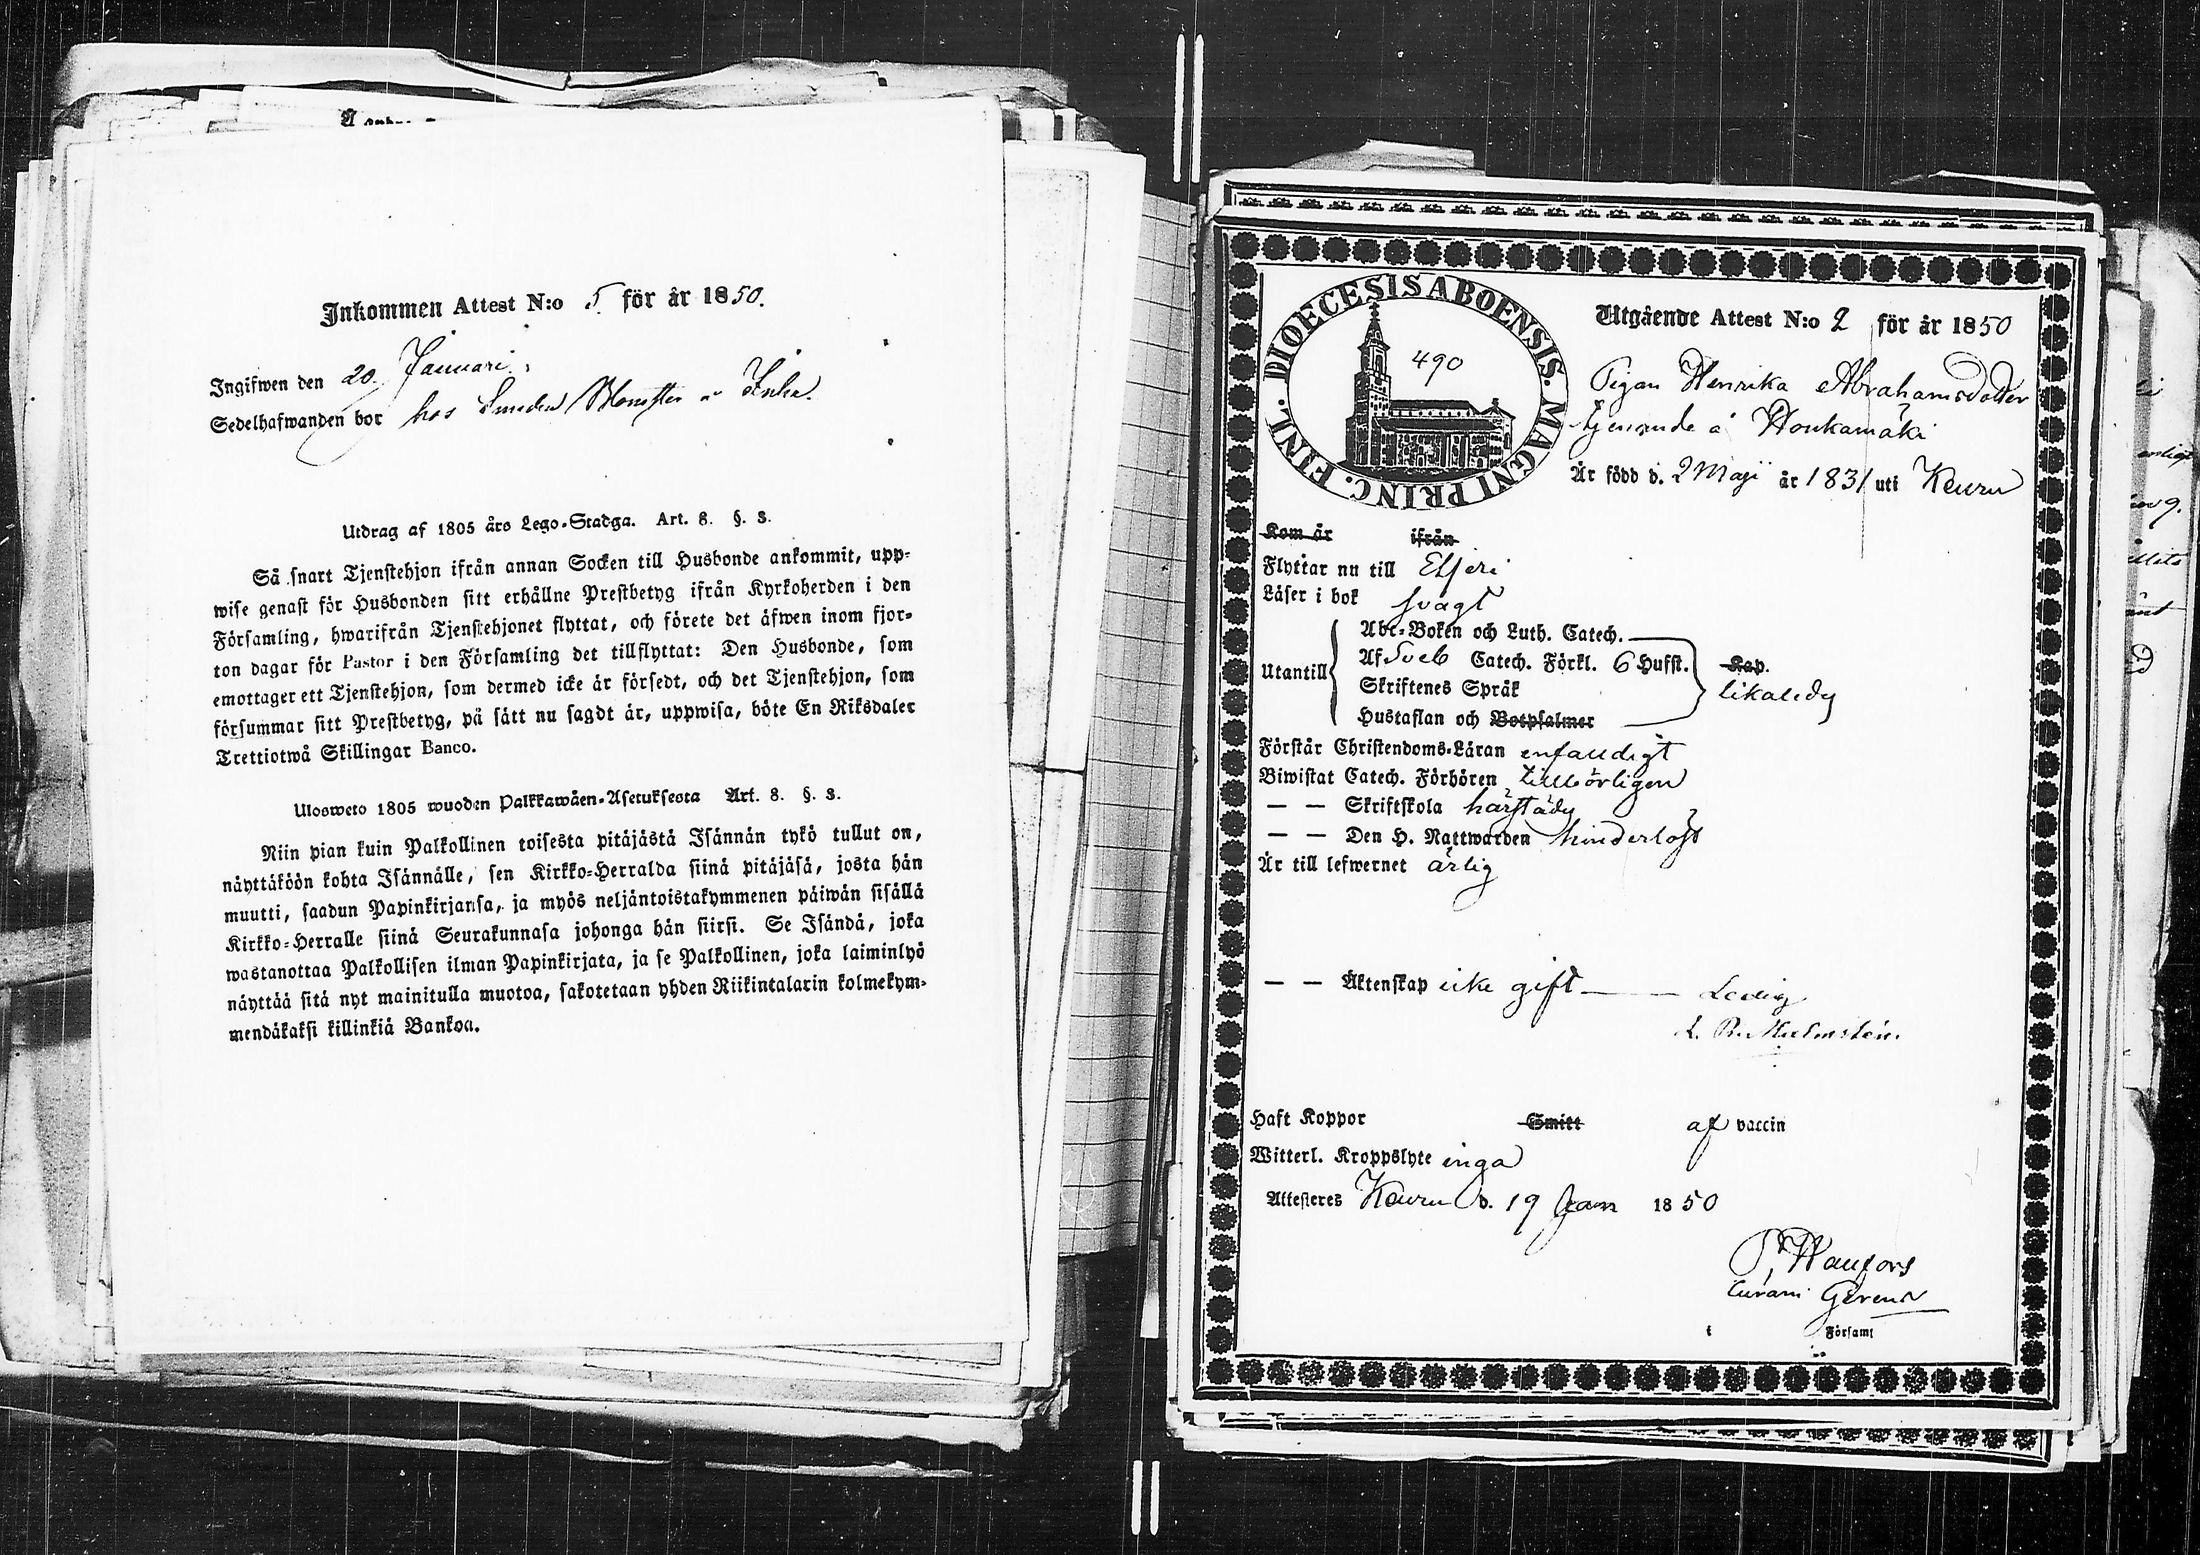 Inkommen Attest N:o 5 för år 1850.
Ingifwen den 20 Januari.
Sedelhafwanden bor hos Smeden
Utdrag af 1805 års Lego-Stadga. Art. 8. §. 3.
Så snart Tjenstehjon ifrån annan Socken till Husbonde ankommit, upp-
wise genast för Husbonden sitt erhållne Prestbetyg ifrån Kyrkoherden i den
Församling, hwarifrån Tjenstehjonet flyttat, och förete det äfwen inom fjor-
ton dagar för Pastor i den Församling det tillflyttat: Den Husbonde, som
emottager ett Tjenstehjon, som dermed icke är försedt, och det Tjenstehjon, som
försummar sitt Prestbetyg, på sätt nu sagdt är, uppwisa, böte En Riksdaler
Trettiotwå Skillingar Banco.
Ulosweto 1805 wuoden Palkkawäen-Asetuksesta Art. 8. §. 3.
Niin pian kuin Palkollinen toisesta pitäjästä Isännän tykö tullut on,
näyttäköön kohta Isännälle, sen Kirkko-Herralda siinä pitäjäsä, josta hän
muutti, saadun Papinkirjansa, ja myös neljäntoistakymmenen päiwän sisällä
Kirkko-Herralle siinä Seurakunnasa johonga hän siirsi. Se Isändä, joka
wastanottaa Palkollisen ilman Papinkirjata, ja se Palkollinen, joka laiminlyö
näyttää sitä nyt mainitulla muotoa, sakotetaan yhden Riikintalarin kolmekym-
mendäkaksi killinkiä Bankoa.
DIOECESIS ABOENSIS. MAGNI PRINC. FINL.
490
Utgående Attest N:o 2 för år 1850
Pigan Henrika Abrahamsdotter
tjenande å Houkamäki
Är född d. 2 Maji år 1831 uti Keuru
Kom år ifrån
Flyttar nu till Etseri
Läser i bok svagt
Utantill
Abc-Boken och Luth. Catech.
Af Sveb Catech. Förkl. 6 Hufst. Kap.
Skriftenes Språk likaledes
Hustaflan och Botpsalmer
Förstår Christendoms-Läran enfaldigt
Biwistat Catech. Förhören tillbörligen
— — Skriftskola härstädes
— — Den H. Nattwarden hinderlöst
Är till lefwernet ärlig
— — Äktenskap icke gift — — Ledig
Malmstén.
Haft Koppor Smitt af vaccin
Witterl. Kroppslyte inga
Attesteres Keuru d. 19 Jan 1850
Curam Gerens
i Församl